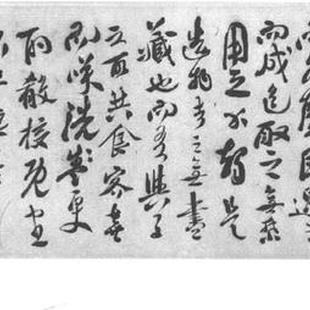 而成色取之無禁
用之不竭是
造物者之無盡
藏也而吾與子
之所共食客喜
而咲洗盞更
酌殽核既盡